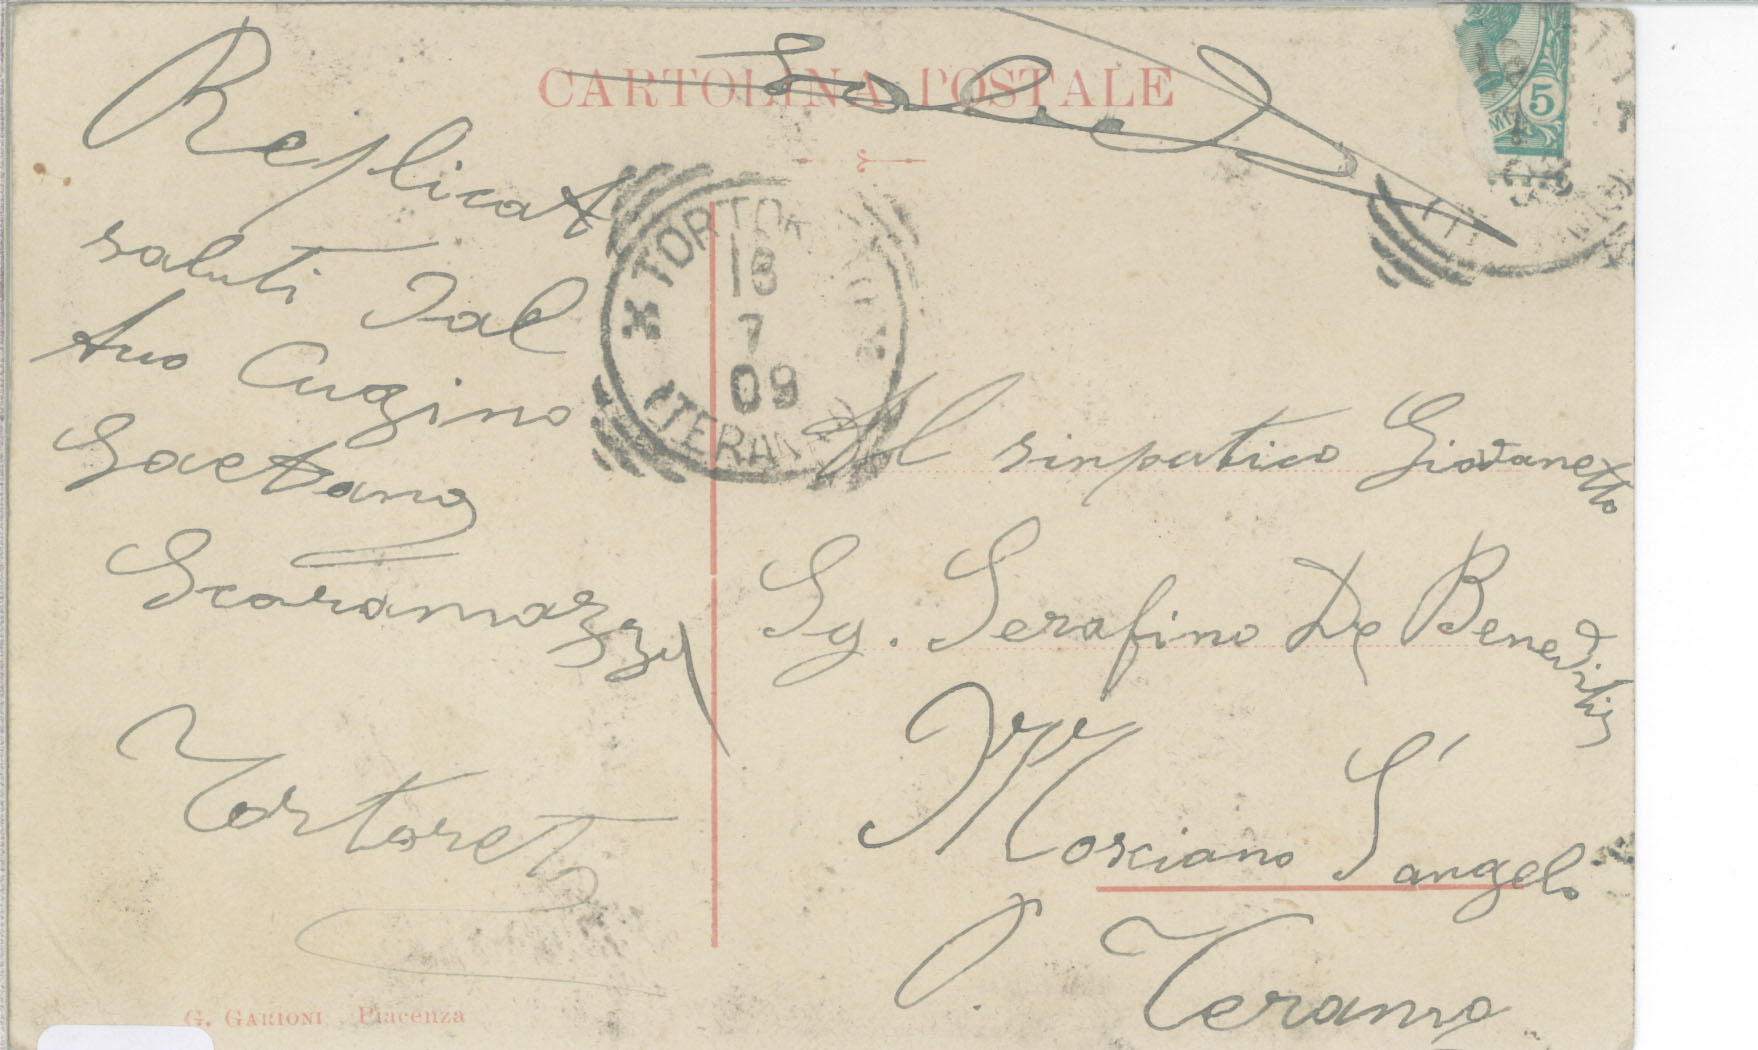 CARTOLINA POSTALE
5
Replicati
saluti dal
tuo Cugino
Gaetano
Scaramazzi
Tortoreto
TORTORETO
18
7
09
(TERAMO)
Al simpatico Giovanetto
Sg. Serafino De Benedictis
Mosciano S'angelo
P. Teramo
G. GARIONI Piacenza